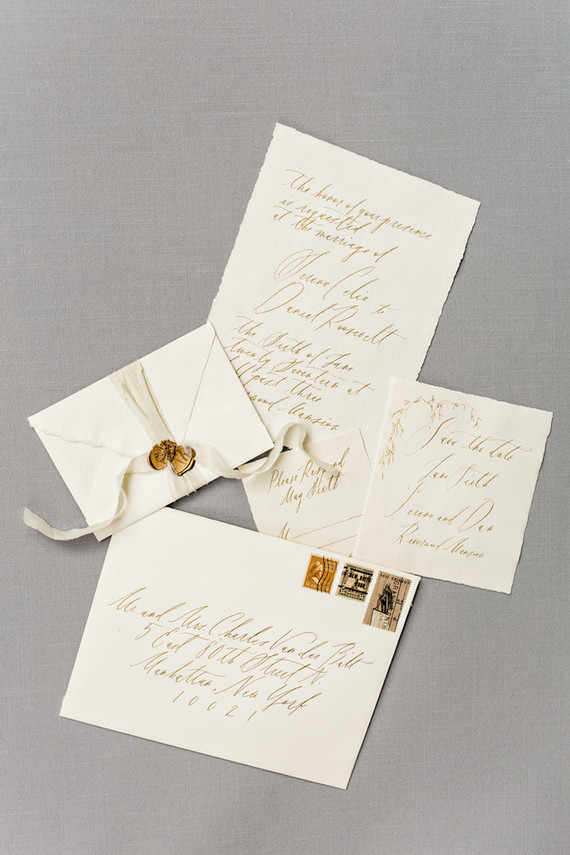 The honor of your presence
is requested
at the marriage of
Serena Celia to
Daniel Roosevelt
the Sixth of June
twenty Seventeen at
half past three
Mansion
Please Respond
May Sixth
M
Save the date
June Sixth
Serena and Dan
Rosewood Mansion
Mr and Mrs. Charles Van der Bilt
5 East 80th Street
Manhattan, New York
10021